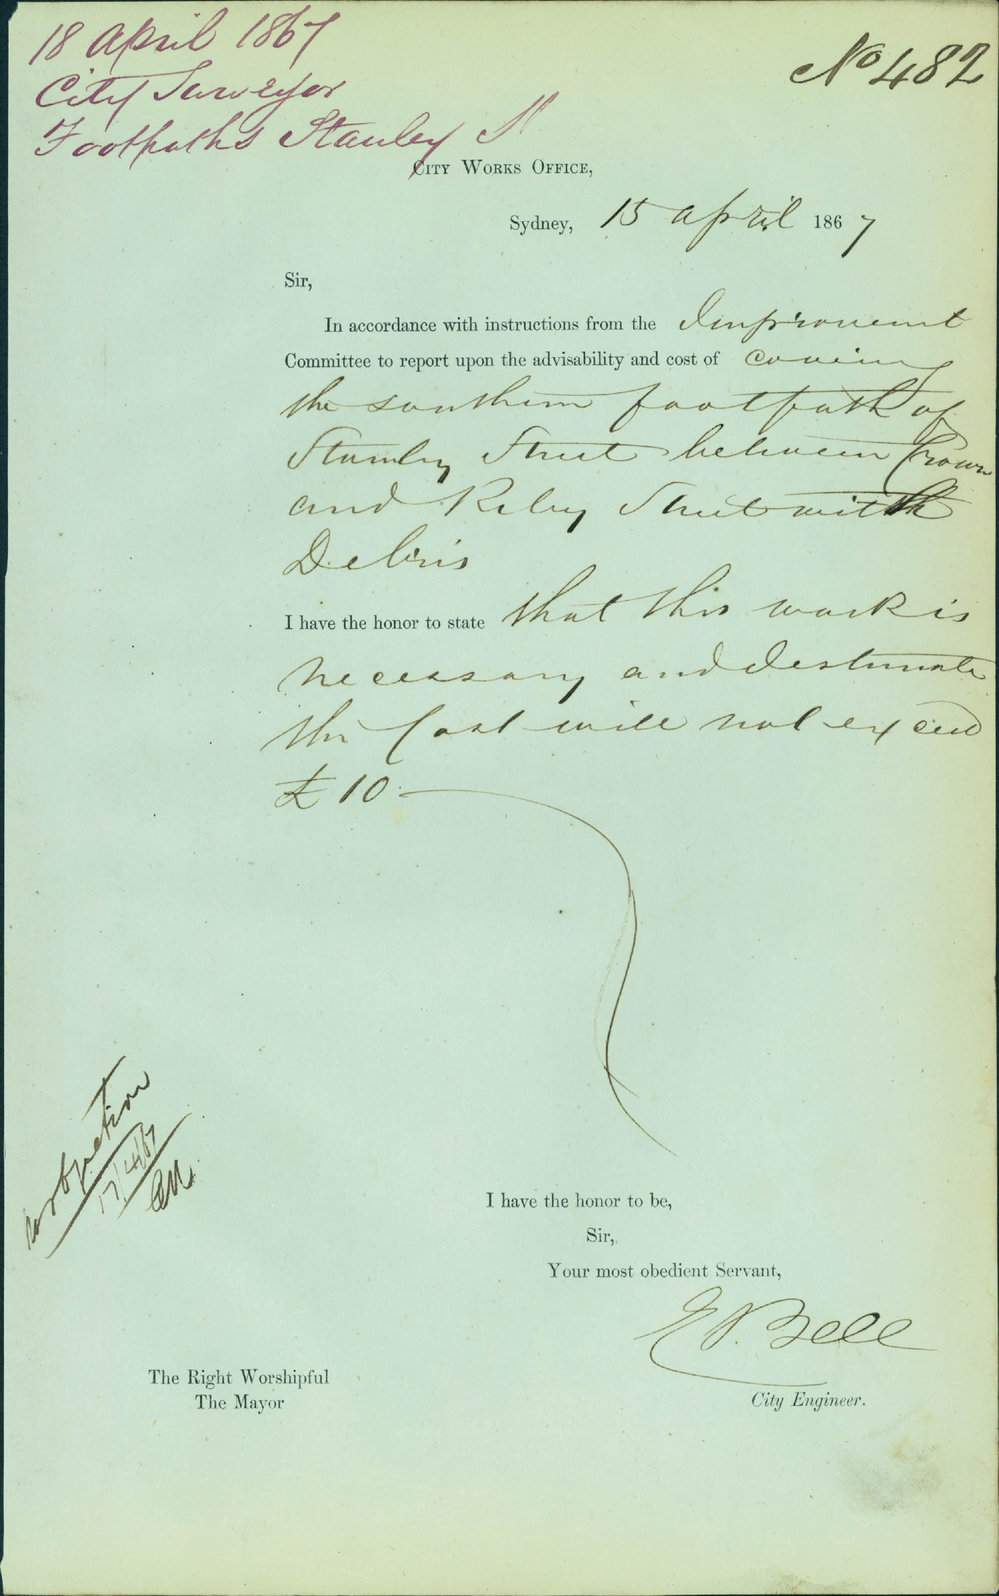 18 April 1867
City Surveyor
Footpaths Stanley St
No 482
CITY WORKS OFFICE,
Sydney, 15 April 1867
Sir,
In accordance with instructions from the Improvement
Committee to report upon the advisability and cost of covering
the southern footpath of
Stanley Street between Crown
and Riley Street with
Debris
I have the honor to state that this work is
necessary and I estimate
the Cost will not exceed
£10
17/4/67
I have the honor to be,
Sir,
Your most obedient Servant,
E Bell
City Engineer.
The Right Worshipful
The Mayor